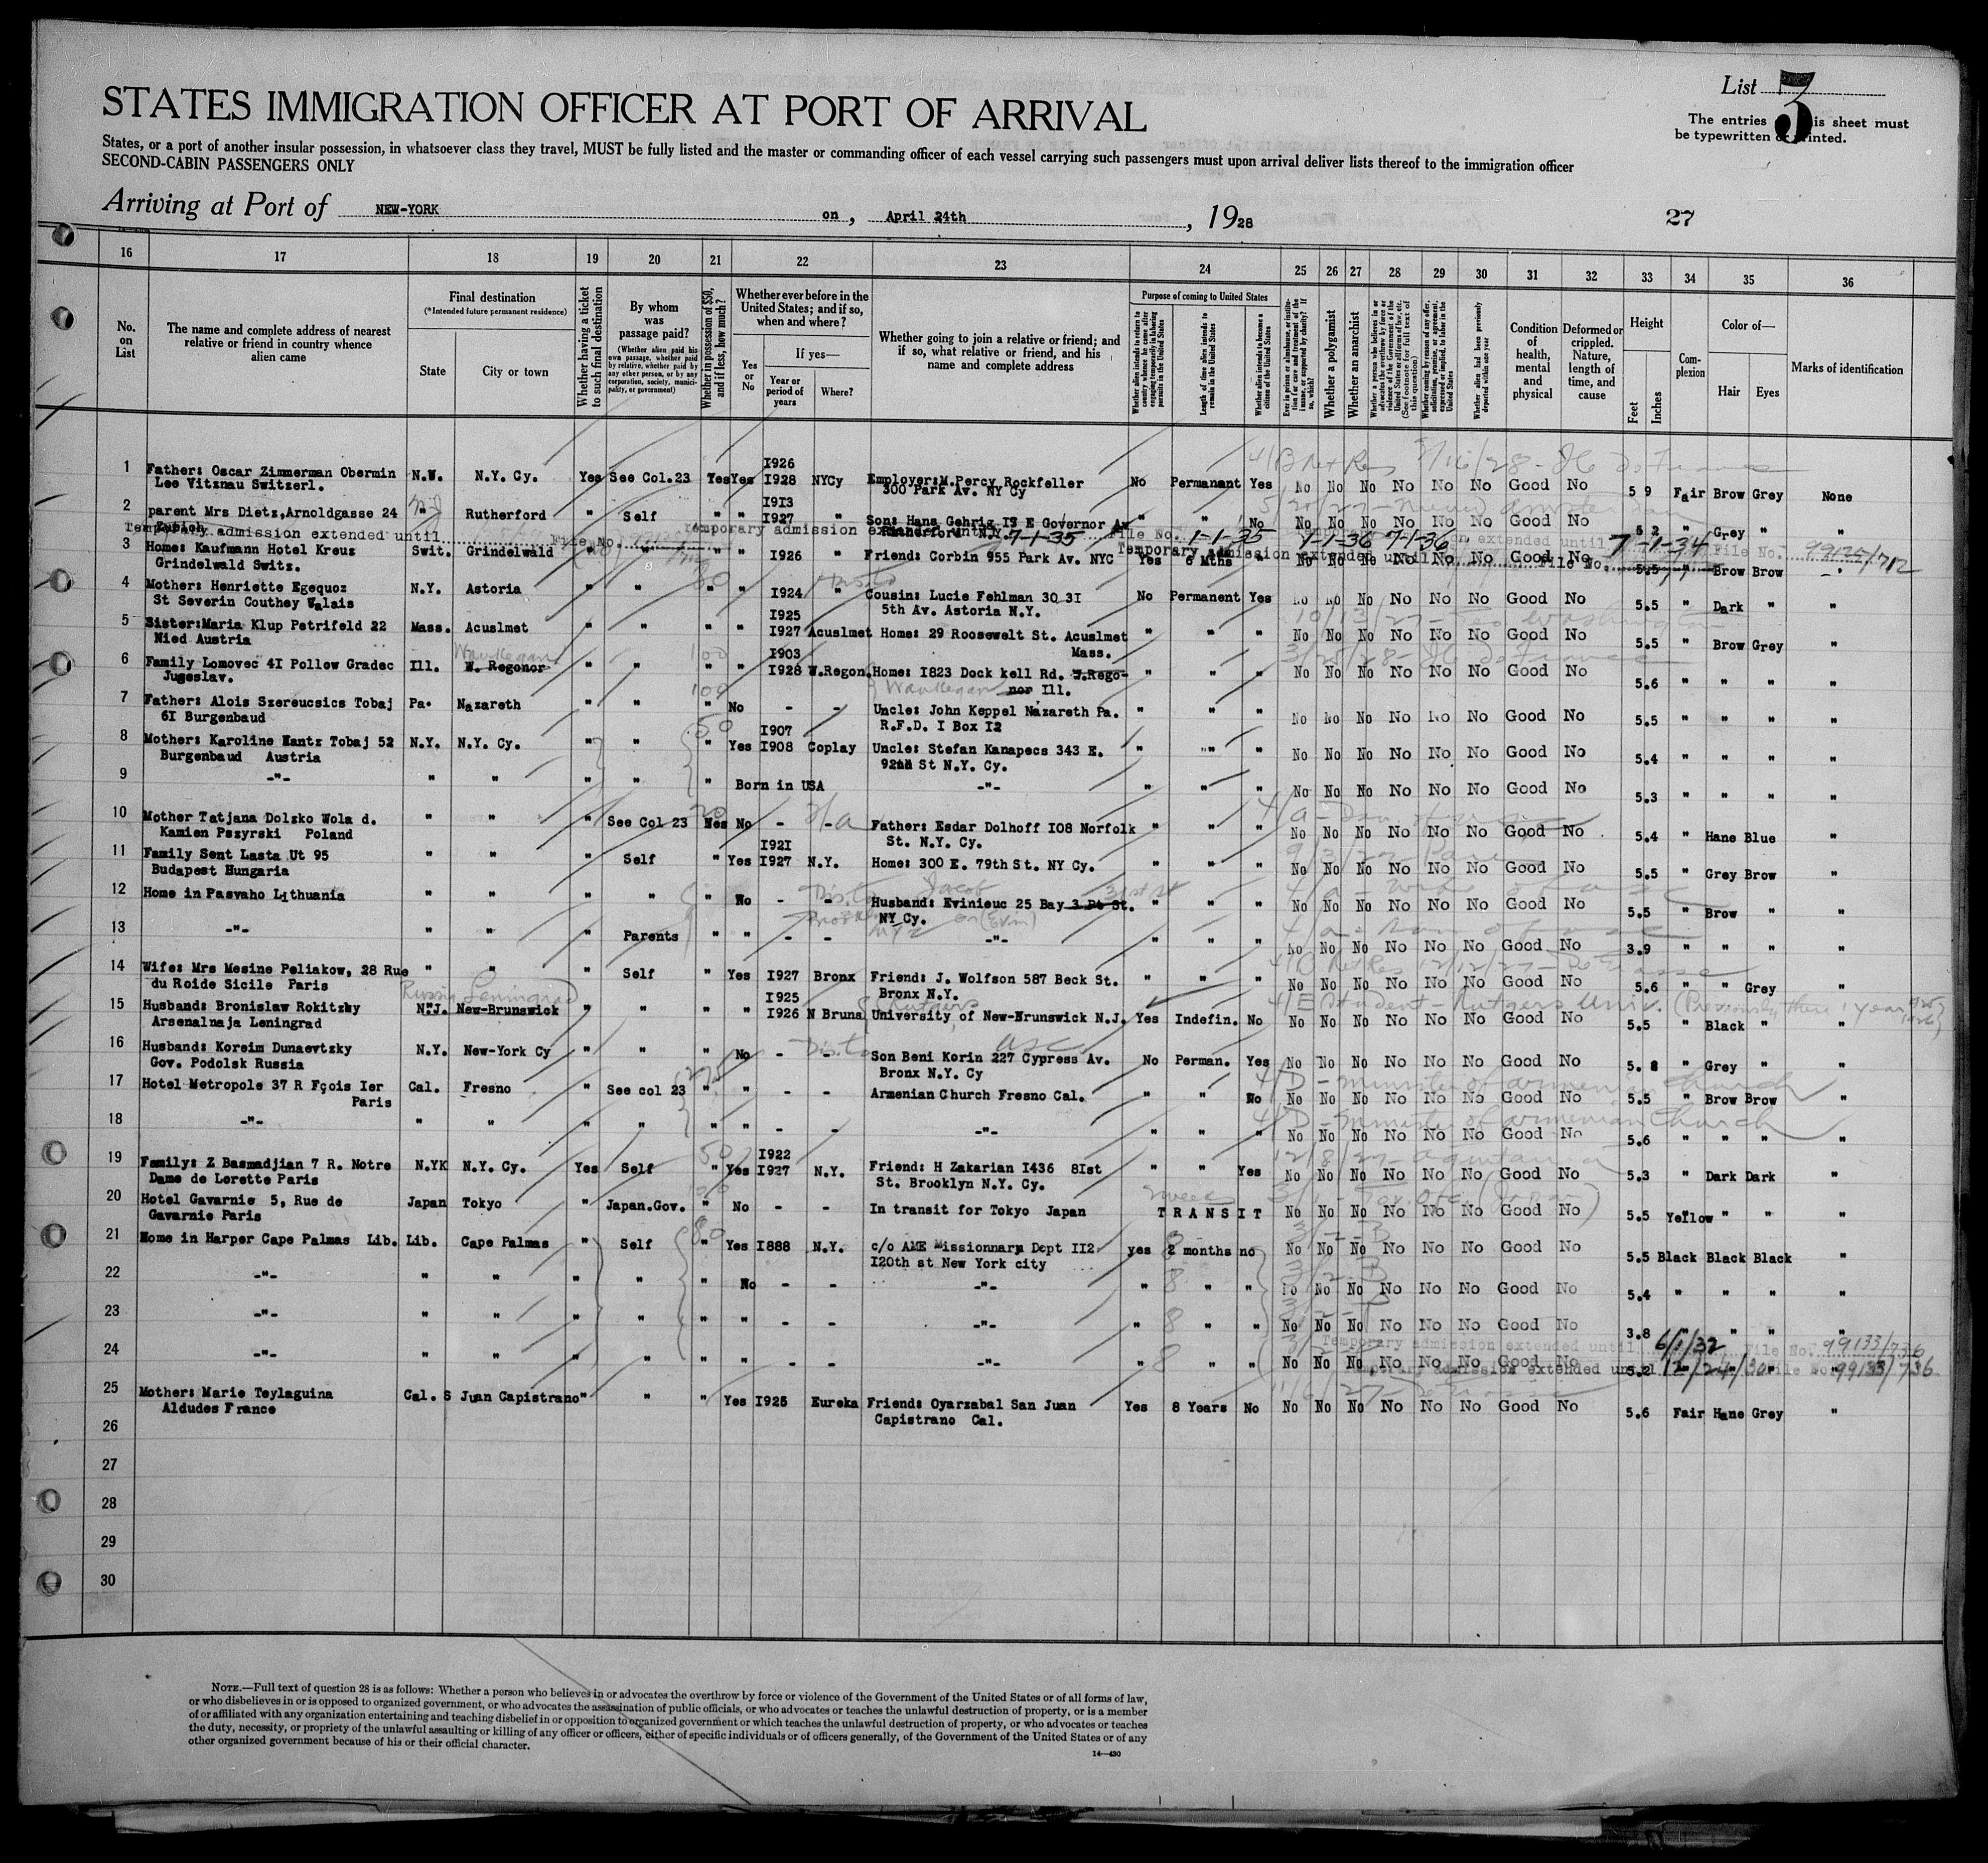 STATES IMMIGRATION OFFICER AT PORT OF ARRIVAL
List 3
The entries is sheet must
be typewritten or printed.
States, or a port of another insular possession, in whatsoever class they travel, MUST be fully listed and the master or commanding officer of each vessel carrying such passengers must upon arrival deliver lists thereof to the immigration officer
SECOND-CABIN PASSENGERS ONLY
Arriving at Port of NEW-YORK on, April 24th, 1928
27
16 17 18 19 20 21 22 23 24 25 26 27 28 29 30 31 32 33 34 35 36
No. on List
The name and complete address of nearest relative or friend in country whence alien came
Final destination
(*Intended future permanent residence)
State City or town
Whether having a ticket to such final destination
By whom was passage paid?
(Whether alien paid his own passage, whether paid by relative, whether paid by any other person, or by any corporation, society, municipality, or government)
Whether in possession of $50, and if less, how much?
Whether ever before in the United States; and if so, when and where?
Yes or No
If yes—
Year or period of years Where?
Whether going to join a relative or friend; and if so, what relative or friend, and his name and complete address
Purpose of coming to United States
Length of time alien intends to remain in the United States
Whether alien intends to become a citizen of the United States
Whether a polygamist
Whether an anarchist
Condition of health, mental and physical
Deformed or crippled. Nature, length of time, and cause
Height
Feet Inches
Complexion
Color of—
Hair Eyes
Marks of identification
1 Father: Oscar Zimmerman Obermin N.W. N.Y. Cy. Yes See Col.23 Yes Yes 1926 1928 NYCy Employer:M.Percy Rockfeller No Permanant Yes No No No No No No Good No 5 9 Fair Brow Grey None
Lee Vitznau Switzerl. 300 Park Av. NY Cy
2 parent Mrs Dietz,Arnoldgasse 24 " Rutherford " Self " " 1913 1927 " Son: Hans Gehrig 17 E Governor Av " " No No No No No No No Good No 5 2 " Grey " "
Zurich Rutherford N.Y.
Temporary admission extended until File No.
Temporary admission 7-1-35 File No. 1-1-35 1-1-36 7-1-36 extended until 7-1-34 File No. 99125/712
3 Home: Kaufmann Hotel Kreuz Swit. Grindelwald " " " " 1926 " Friend: Corbin 955 Park Av. NYC Yes 6 Mths " No No No No No No Good No 5.5 " Brow Brow "
Grindelwald Switz. Temporary admission extended until File No.
4 Mother: Henriette Egequoz N.Y. Astoria " " " " 1924 " Cousin: Lucie Fehlman 30 31 No Permanent Yes No No No No No No Good No 5.5 " Dark " "
St Severin Couthey Walais 5th Av. Astoria N.Y.
5 Sister:Maria Klup Petrifeld 22 Mass. Acuslmet " " " " 1925 1927 Acuslmet Home: 29 Roosewelt St. Acuslmet " " " No No No No No No Good No 5.5 " Brow Grey "
Nied Austria Mass.
6 Family Lomovec 41 Pollow Gradec Ill. W. Regonor Waukegan " " 100 " " 1903 1928 W.Regon. Home: 1823 Dock kell Rd. W.Rego- " " " No No No No No No Good No 5.6 " " " "
Jugoslav. Waukegan nor Ill.
7 Father: Alois Szereucsics Tobaj Pa. Nazareth " " 100 " No - - Uncle: John Keppel Nazareth Pa. " " " No No No No No No Good No 5.5 " " " "
61 Burgenbaud R.F.D. I Box 12
8 Mother: Karoline Hantz Tobaj 52 N.Y. N.Y. Cy. " " 50 " Yes 1907 1908 Coplay Uncle: Stefan Kanapecs 343 E. " " " No No No No No No Good No 5.4 " " " "
Burgenbaud Austria St N.Y. Cy.
9 -"- " " " " " Born in USA -"- " " " No No No No No No Good No 5.3 " " " "
10 Mother Tatjana Dolzko Wola d. " " " See Col 23 20 Yes No - - Father: Esdar Dolhoff 108 Norfolk " " " No No No No No No Good No 5.4 " Hane Blue "
Kamien Pszyrski Poland St. N.Y. Cy.
11 Family Sent Lasta Ut 95 " " " Self " Yes 1921 1927 N.Y. Home: 300 E. 79th St. NY Cy. " " " No No No No No No Good No 5.5 " Grey Brow "
Budapest Hungaria
12 Home in Pasvaho Lithuania " " " " " No - - Jacob Husband: Evinieuc 25 Bay 31st St St. " " " No No No No No No Good No 5.5 " Brow " "
NY Cy.
13 -"- " " " Parents " " - - -"- " " " No No No No No No Good No 3.9 " " " "
14 Wife: Mrs Mesine Peliakow, 28 Rue " " " Self " Yes 1927 Bronx Friend: J. Wolfson 587 Beck St. " " " No No No No No No Good No 5.6 " " Grey "
du Roide Sicile Paris Bronx N.Y.
Russia Leningrad
15 Husband: Bronislaw Rokitzky N.J. New-Brunswick " " " " 1925 1926 N Bruns University of New-Brunswick N.J. Yes Indefin. No No No No No No No Good No 5.5 " Black " "
Arsenalnaja Leningrad
4/E Student - Rutgers Univ. (Previously there 1 year
16 Husband: Koreim Dunaevtzky N.Y. New-York Cy " " " No - - Son Beni Korin 227 Cypress Av. No Perman. Yes No No No No No No Good No 5. 8 " Grey " "
Gov. Podolsk Russia Bronx N.Y. Cy
17 Hotel Metropole 37 R Fçois Ier Cal. Fresno " See col 23 " " - - Armenian Church Fresno Cal. " " No No No No No No No Good No 5.5 " Brow Brow "
Paris 4/D - minister of armenian church
18 -"- " " " " " " - - -"- " " " No No No No No No Good No 5.6 " " " "
4/D - minister of armenian Church
19 Family: Z Basmadjian 7 R. Notre N.YK N.Y. Cy. Yes Self 50 " Yes 1922 1927 N.Y. Friend: H Zakarian 1436 81st " " Yes No No No No No No Good No 5.3 " Dark Dark "
Dame de Lorette Paris St. Brooklyn N.Y. Cy. 12/8/27 - Aquitania
20 Hotel Gavarnie 5, Rue de Japan Tokyo " Japan.Gov. " No - - In transit for Tokyo Japan TRANSIT No No No No No No Good No 5.5 Yellow " " "
Gavarnie Paris
21 Home in Harper Cape Palmas Lib. Lib. Cape Palmas " Self 80 " Yes 1888 N.Y. c/o AME Missionnary Dept 112. yes 2 months no No No No No No No Good No 5.5 Black Black Black "
120th st New York city
22 -"- " " " " " No - - -"- " 8 " " No No No No No No Good No 5.4 " " " "
23 -"- " " " " " " - - -"- " 8 " " No No No No No No Good No 3.8 " " " "
Temporary admission extended until 6/1/32 File No. 99133/736
24 -"- " " " " " " - - -"- " 8 " " No No No No No No Good No 5.2 " " " "
Temporary admission extended until 12/24/30 File No. 99133/736
25 Mother: Marie Teylaguina Cal. S Juan Capistrano " " " Yes 1925 Eureka Friend: Oyarzabal San Juan Yes 8 Years No No No No No No No Good No 5.6 Fair Hane Grey "
Aldudes France Capistrano Cal.
26
27
28
29
30
NOTE.—Full text of question 28 is as follows: Whether a person who believes in or advocates the overthrow by force or violence of the Government of the United States or of all forms of law,
or who disbelieves in or is opposed to organized government, or who advocates the assassination of public officials, or who advocates or teaches the unlawful destruction of property, or is a member
of or affiliated with any organization entertaining and teaching disbelief in or opposition to organized government or which teaches the unlawful destruction of property, or who advocates or teaches
the duty, necessity, or propriety of the unlawful assaulting or killing of any officer or officers, either of specific individuals or of officers generally, of the Government of the United States or of any
other organized government because of his or their official character.
14—430